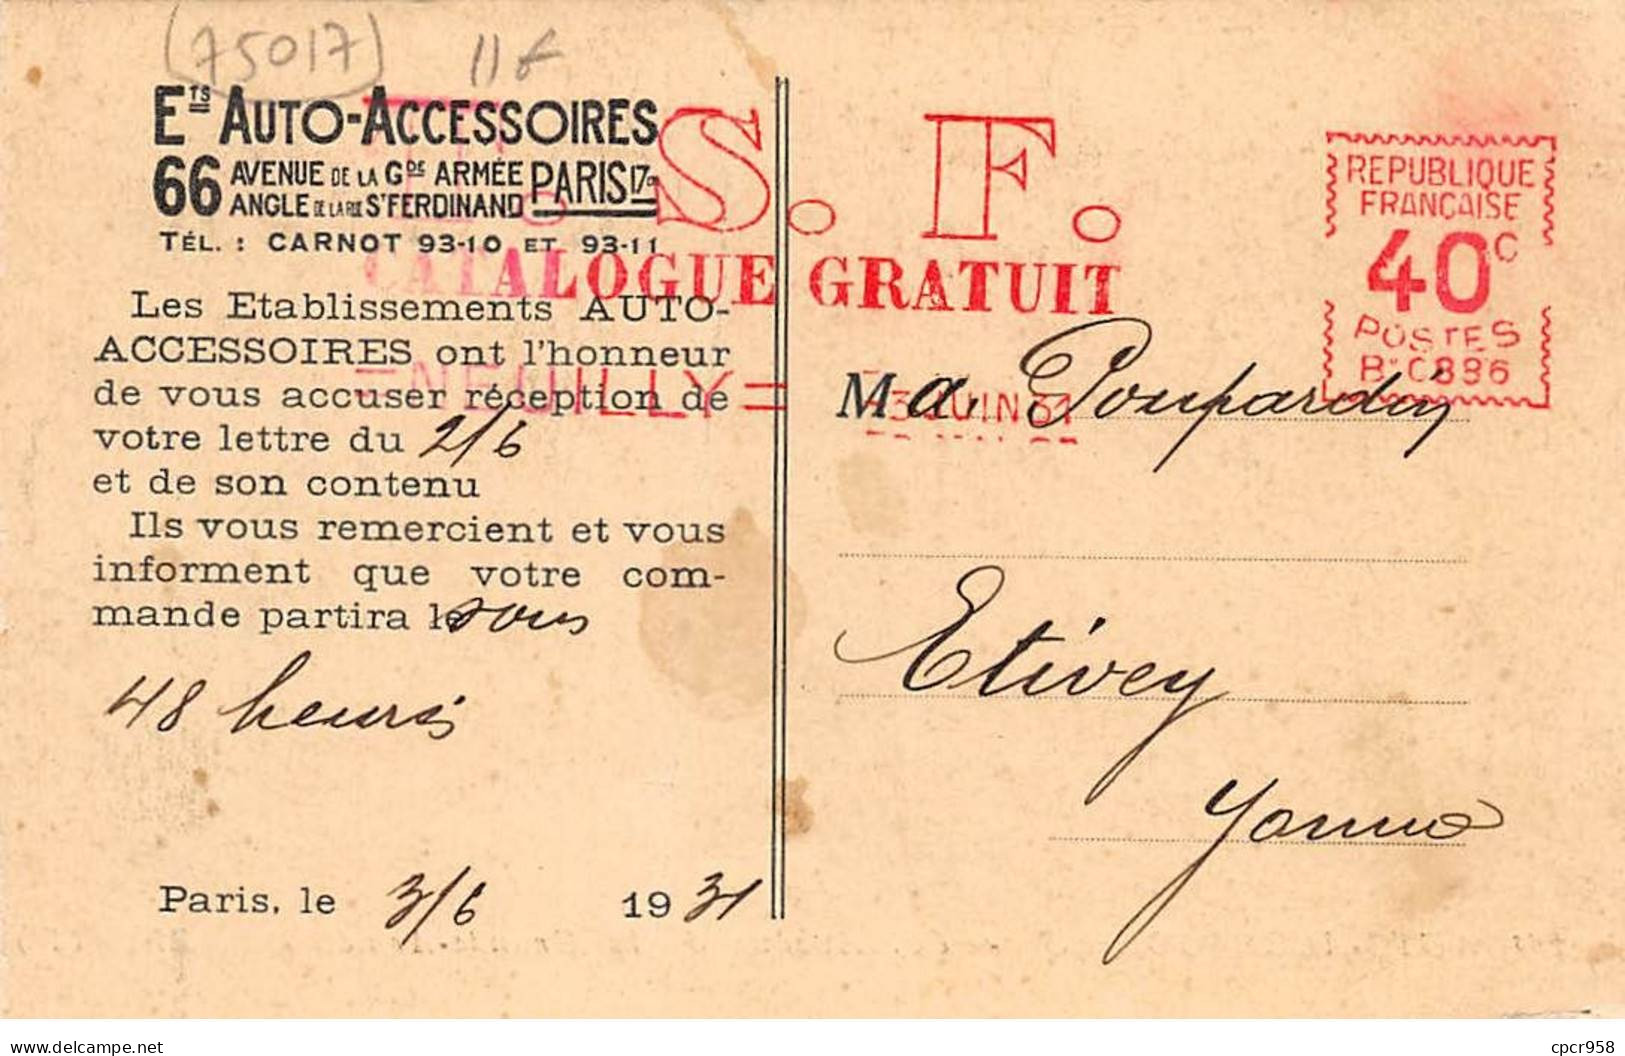 (75017) 11 €
Ets AUTO-ACCESSOIRES
66 AVENUE DE LA Gde ARMÉE
ANGLE DE LA RUE St FERDINAND PARIS 17e
TÉL. : CARNOT 93-10 ET 93-11
T. S. F.
CATALOGUE GRATUIT
=NEUILLY=
Les Etablissements AUTO-
ACCESSOIRES ont l'honneur
de vous accuser réception de
votre lettre du 2/6
et de son contenu
Ils vous remercient et vous
informent que votre com-
mande partira le sous
48 heures
Paris, le 3/6 1931
REPUBLIQUE
FRANCAISE
40c
POSTES
B. C886
-3 JUIN 31
M a. Poupardin
Etivey
Yonne
cpcr958